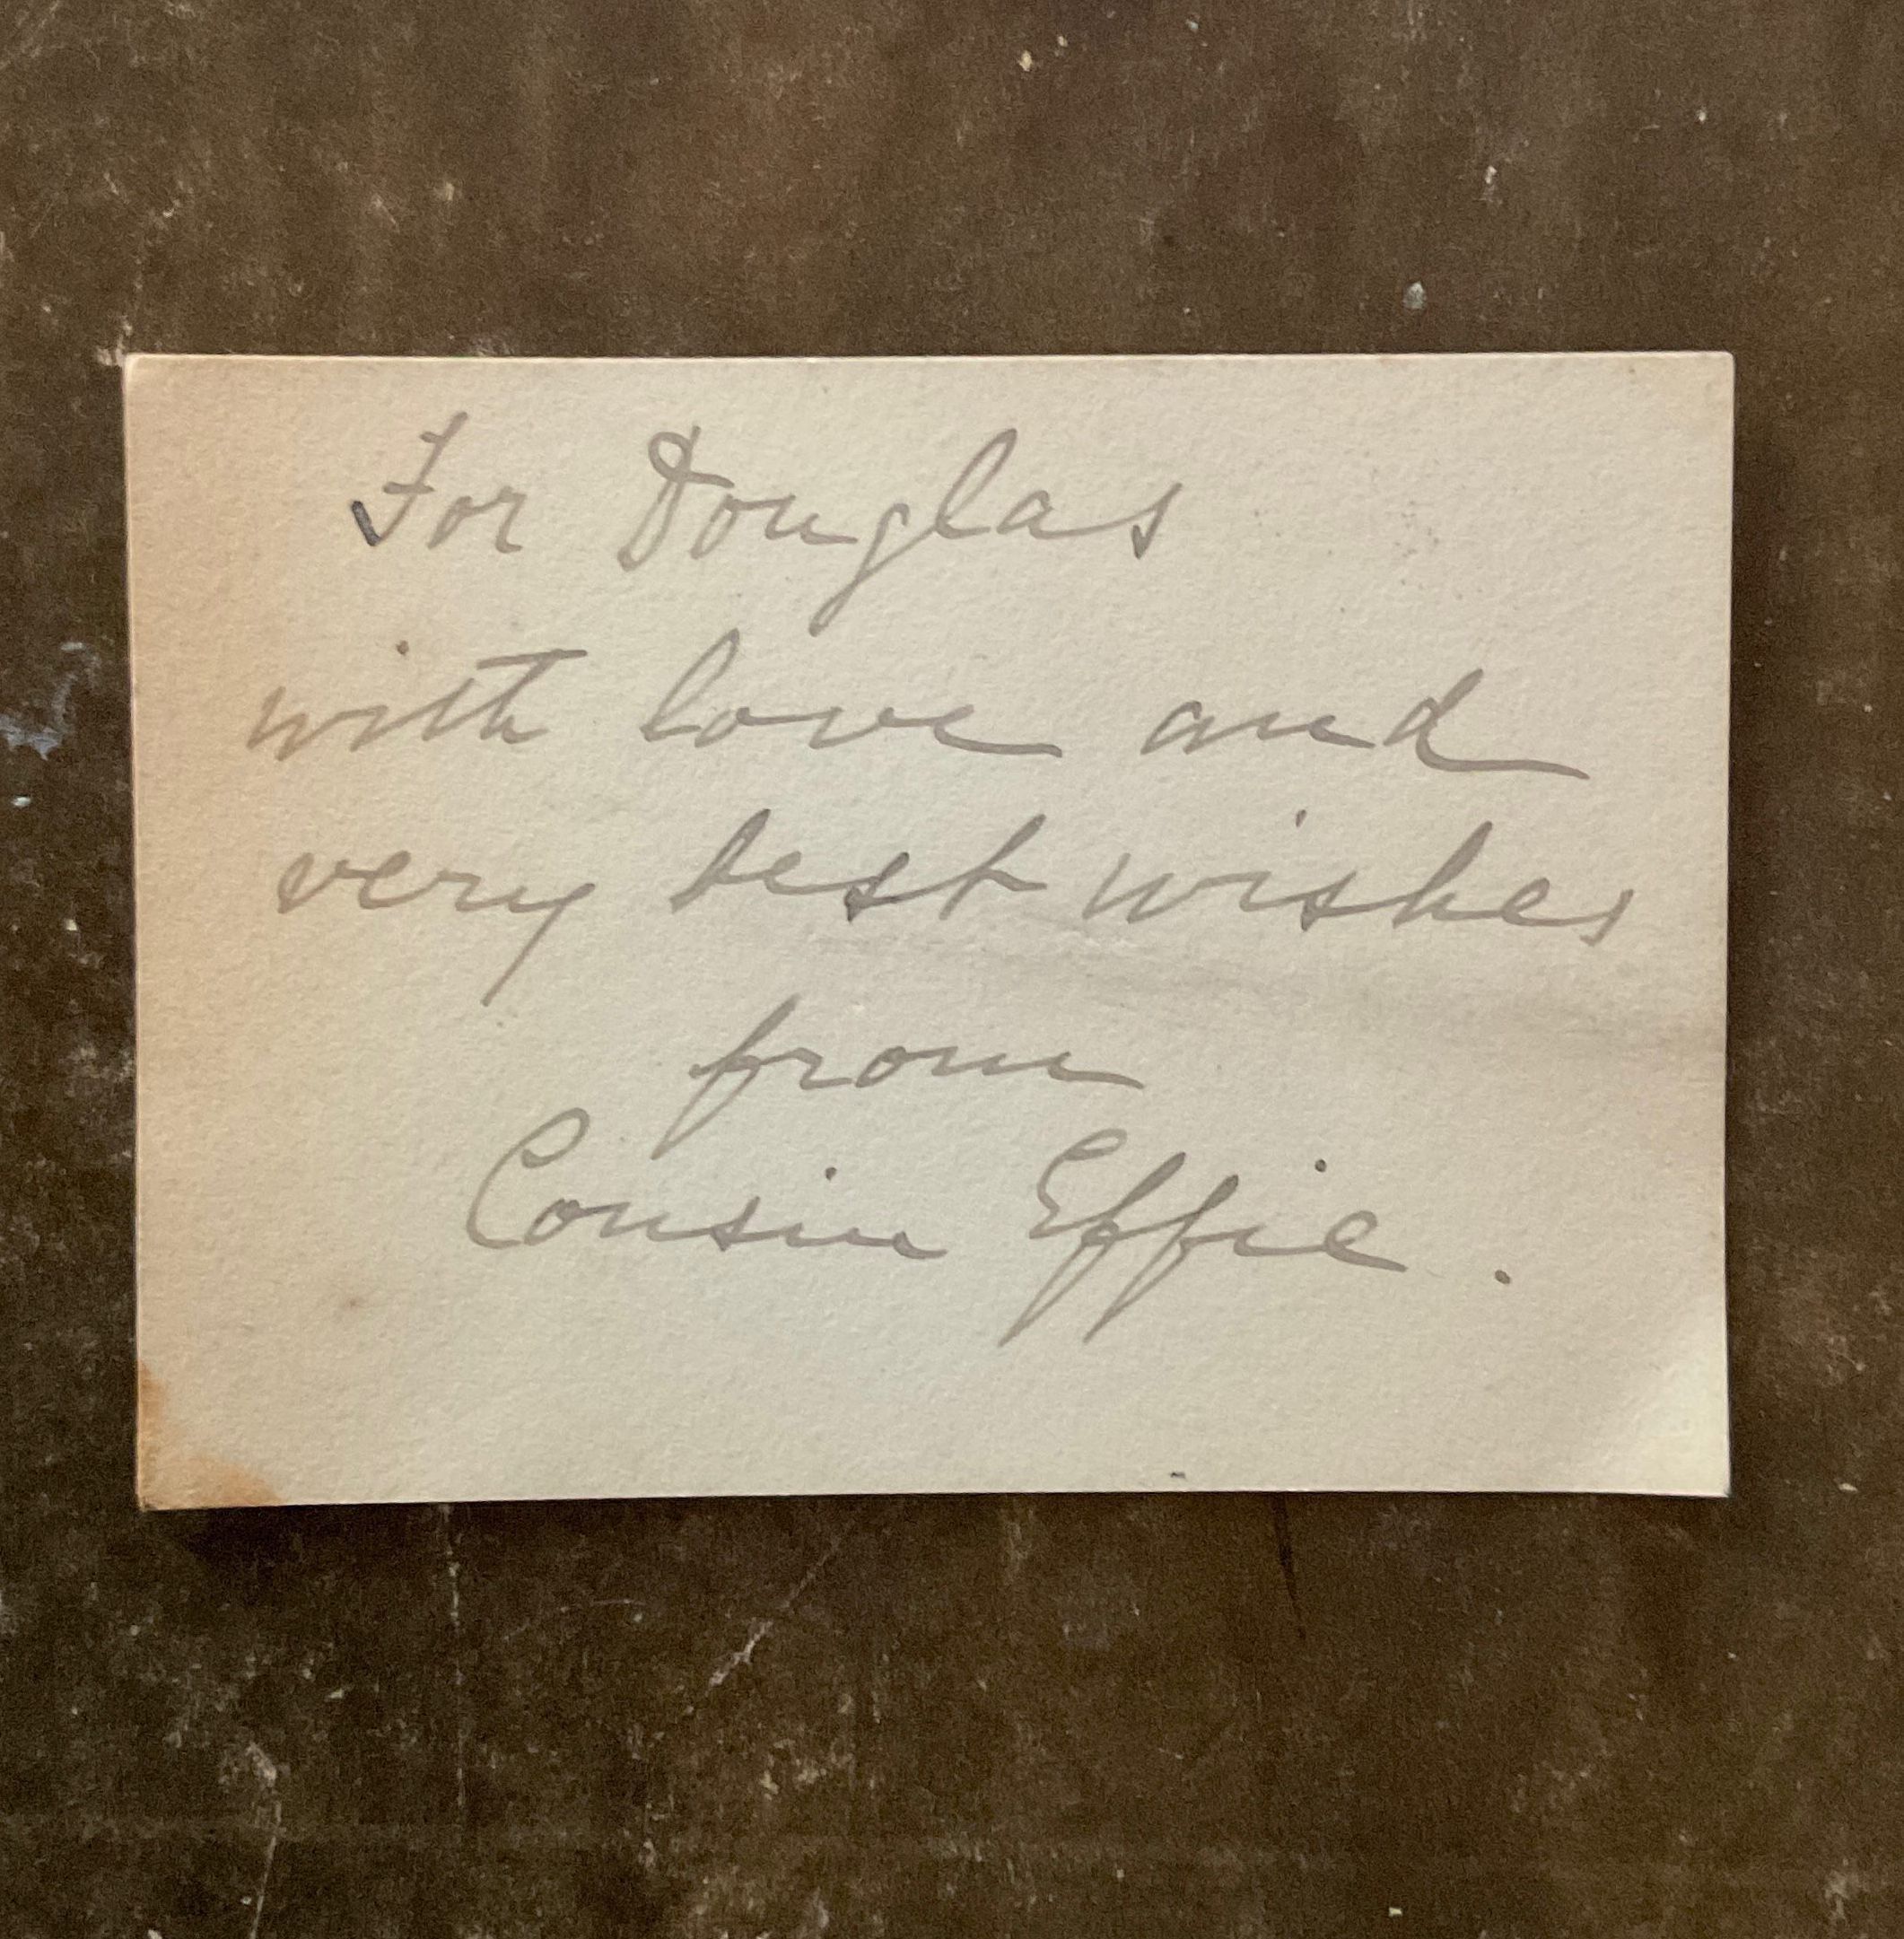 For Douglas
with love and
very best wishes
from
Cousin Effie.